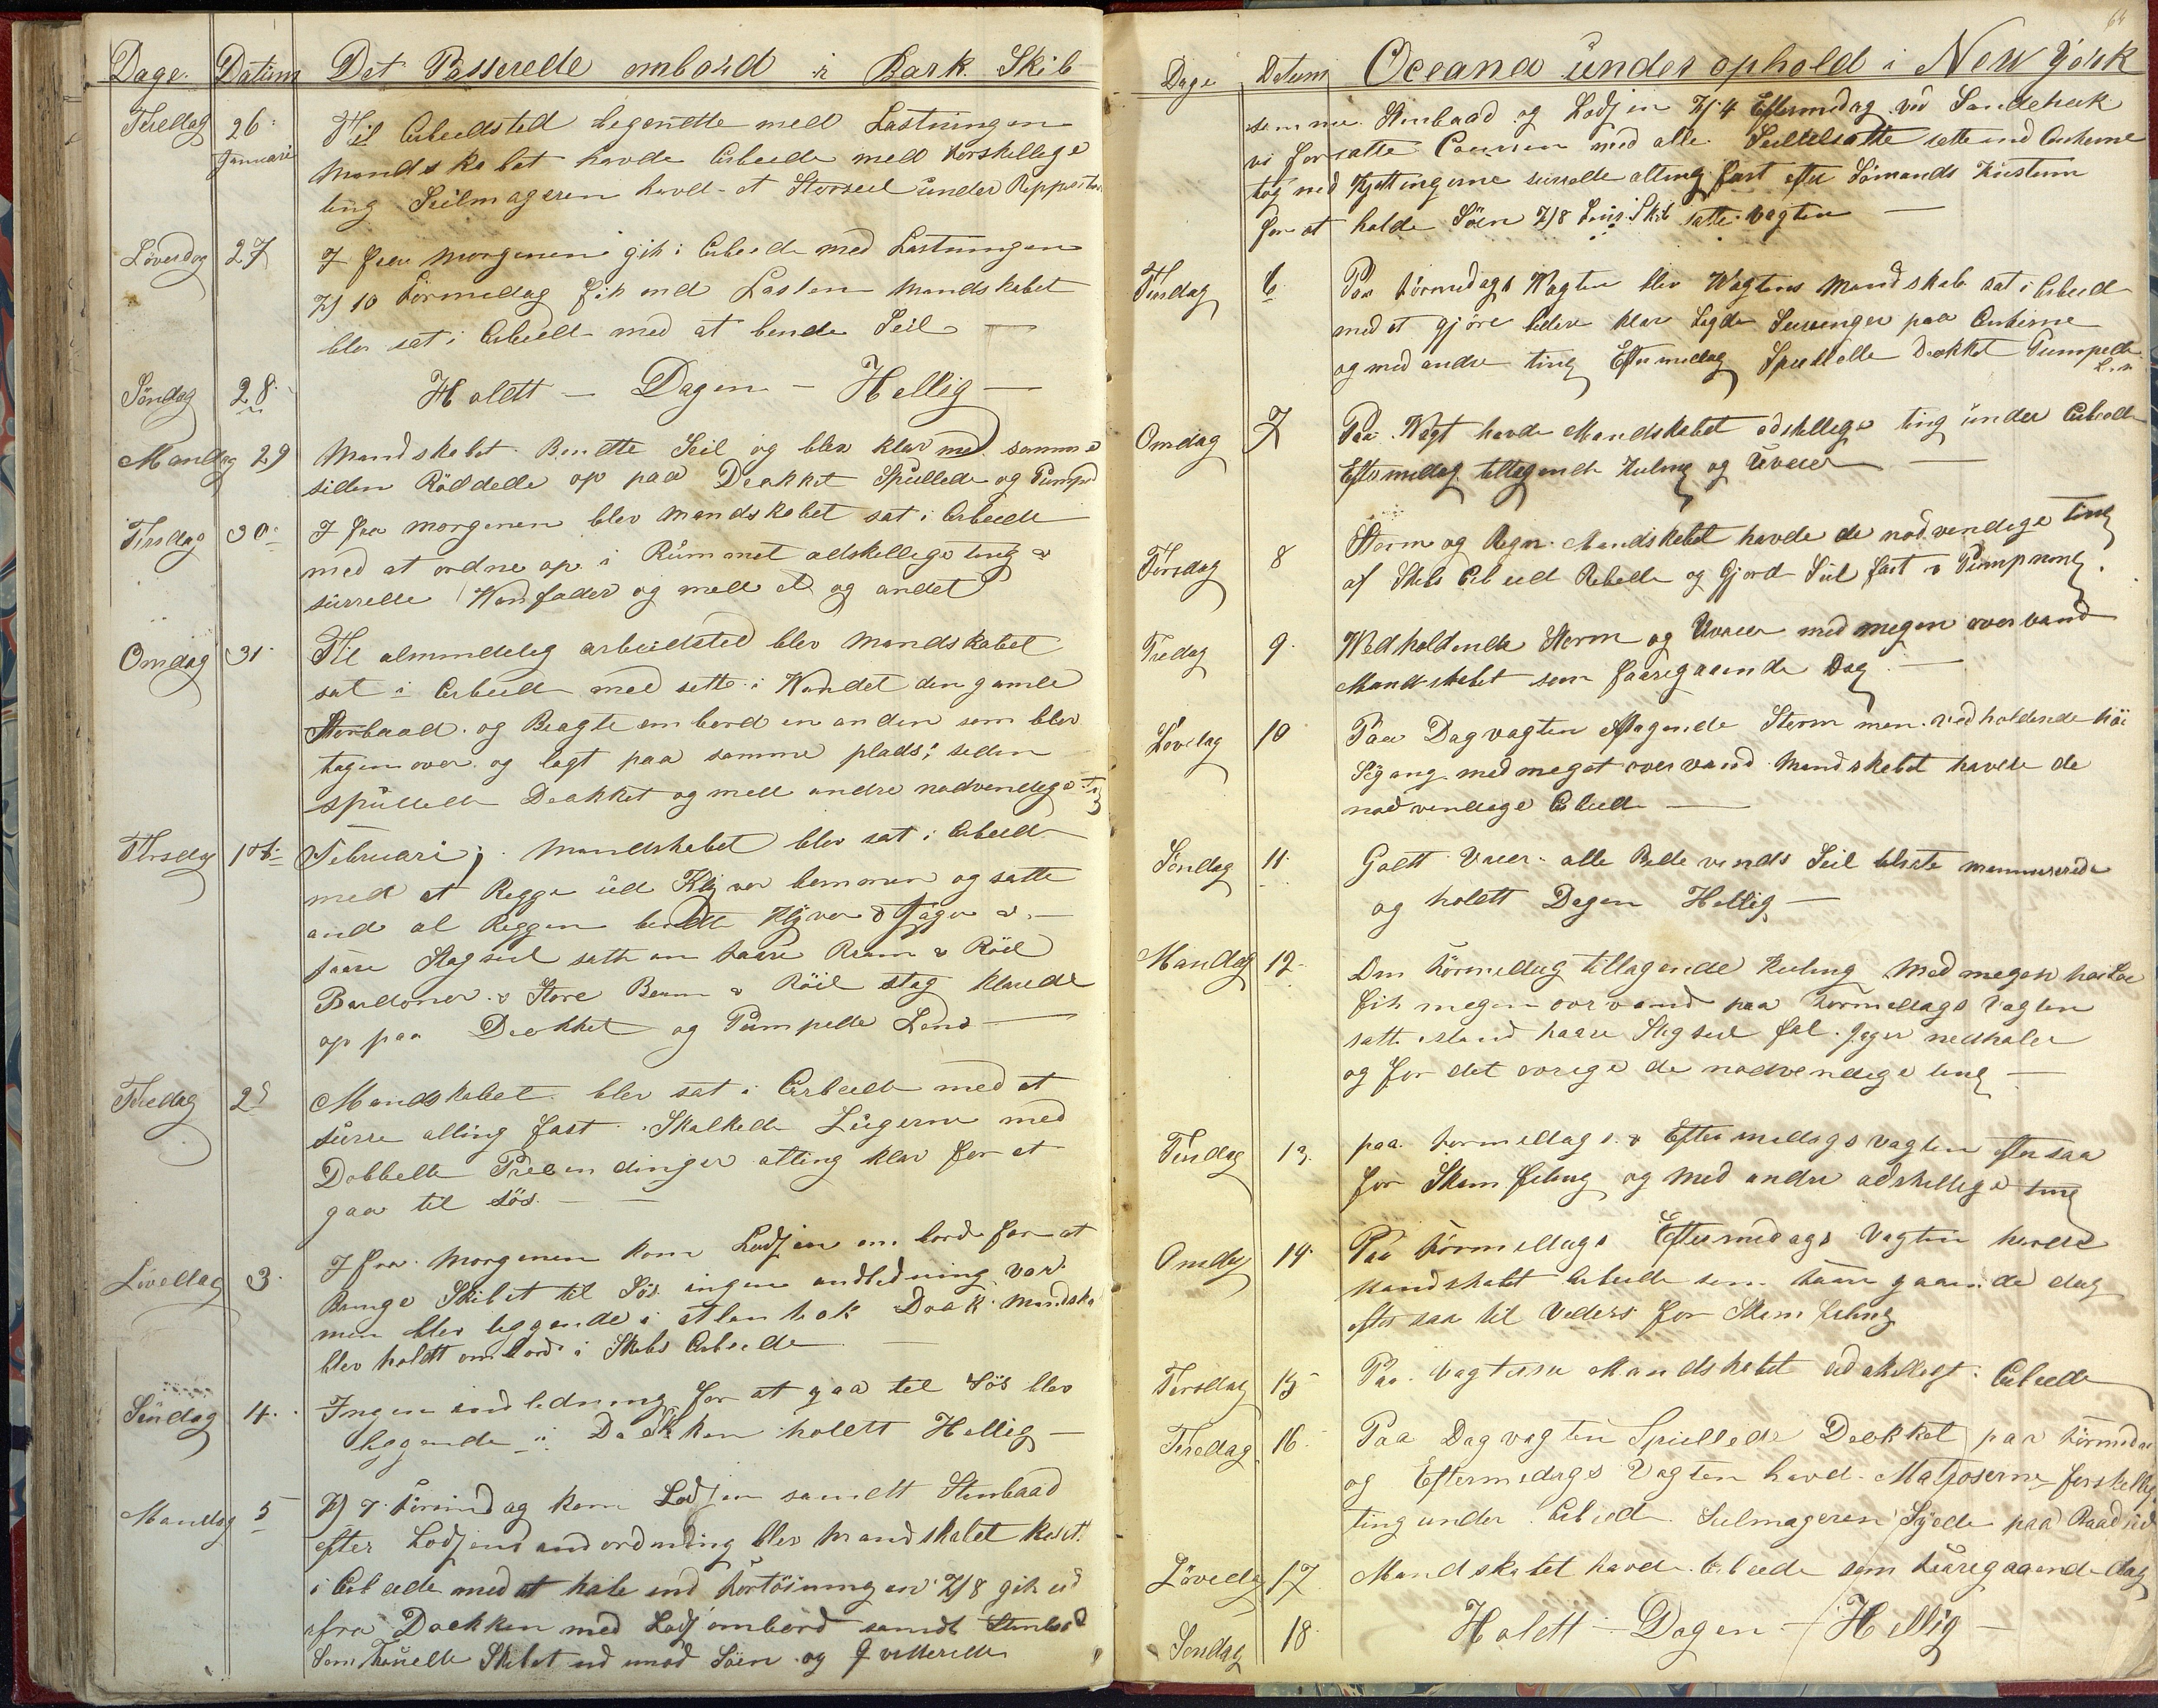 Dage. Datum Det Passerede ombord i Bark. Skib
Fredag 26 Til Arbeidsted begyndte med Lastningen
Januari Mandskabet havde Arbeide med forskellige
ting Seilmageren havd et Storseil under Reppertion
Löverdag 27 I fra morgenen gik i Arbeide med Lastningen
Kl 10 Formedag fik ind Lasten Mandskabet
blev sat i Arbeide med at bende Seil
Söndag 28 Holdtt — Dagen — Hellig —
Mandag 29 Mandskabet Bendte Seil og blev klar med samme
siden Röddede op paa Dækket Spullede og Pumped
Tirsdag 30 I fra morgenen blev Mandskabet sat i Arbeide
med at ordne op i Rummet adskellige ting &
surrede Wandfader og med et og andet
Omdag 31 Til almindelig arbeidsted blev Mandskabet
sat i Arbeide med sette i Wandet den gamle
Storbaad og Bragte ombord en anden som blev
tagen over og lagt paa samme plads; seden
spullede Dækket og med andre nodvendige ting
Thorsdag 1st Februari; Mandskabet blev sat i Arbeide
med at Rigge ud Klyver bommen og satte
and al Riggen bendte Klyver & Jager &
faare Stagseil satte an faare Bram & Röil
Bardoner & Store Bram & Röil stag klarede
op paa Dækket og Pumpede Lens
Fredag 2d Mandskabet blev sat i Arbeide med at
surre alting fast Skalkede Lugerne med
Dobbelte Presendinger alting klar for at
gaa til Sös
Lövedag 3 I fra Morgenen kom Lodsen om bord for at
Bringe Skibet til Sös ingen andledning var
men blev leggende i Dock Mandska
blev holdtt ombord i Skibs Arbeide
Söndag 4 Ingen andledning for at gaa til Sös blev
leggende i Dockken holdtt Hellig —
Mandag 5 Kl 7 Formedag kom Lodsen samdtt Stembaad
efter Lodsens andordning blev Mandskabet
i Arbeide med at hale ind Fortöiningen Kl 8 gik ud
fra Dockken med Lods ombord samdt Stembaad
Som Tauede Skibet ud imod Söen og Qvitterede
64
Dage Datum Oceana under ophold i New York
samme Stembaad og Lodsen Kl 4 Eftermedag ved Sandehuk
vi forsatte Coursen med alle Seil tilsatte sette ind Ankerne
tog ned Kjettingerne surrede alting fast efter Sömands Kustum
for at holde Söen Kl 8 Lens Skib satte Vagten —
Tirsdag 6 Paa Formedags Wagten blev Wagtens Mandskab sat i Arbeide
med at gjöre bedere klar Lagde Surringer paa Ankerne
og med andre ting Eftermedag Spullede Dækket Pumpede
Len
Omdag 7 Paa Wagt havde Mandskabet adskellige ting under Arbeide
Eftermedag tiltagende Kuling og Uveier —
Torsdag 8 Storm og Regn Mandskabet havde de nödvendige ting
af Skibs Arbeid Rebede og Gjorde Seil fast & Pumpning
Fredag 9 Wedholdende Storm og Uveier med megen overvand
Mandskabet som faaregaaende Dag —
Lövedag 10 Paa Dagvagten aftagende Storm men vedholdende höi
Sögang med meget overvand Mandskabet havde de
nödvendige Arbeide —
Söndag 11 Godtt Veier alle Bedevends Seil tilsate
og holdtt Dagen Hellig —
Mandag 12 Om Formedag tillagende Kuling med megen höi Sö
fik megen overvand paa Formedags Vagten
satte istand faare Stagseil fal Jager nedhaler
og for det övrige de nodvendige ting —
Tirsdag 13 paa Formedags & Eftermedags vagten eftersaa
for Skamfeling og med andre adskellige ting
Omdag 14 Paa Formedags Eftermedags Vagten havde
Mandskabet Arbeide som faaregaaende dag
eftersaa til Veders for Skamfeling
Torsdag 15 Paa Vagterne Mandskabet adskelligt Arbeide
Fredag 16 Paa Dagvagten Spullede Dækket paa Formedag
og Eftermedags Vagten havde Matroserne forskellige
ting under Arbeide Seilmageren Syede paa Baad
Lövedag 17 Mandskabet havde Arbeide som faaregaaende dag
Söndag 18 Holdtt — Dagen — Hellig —